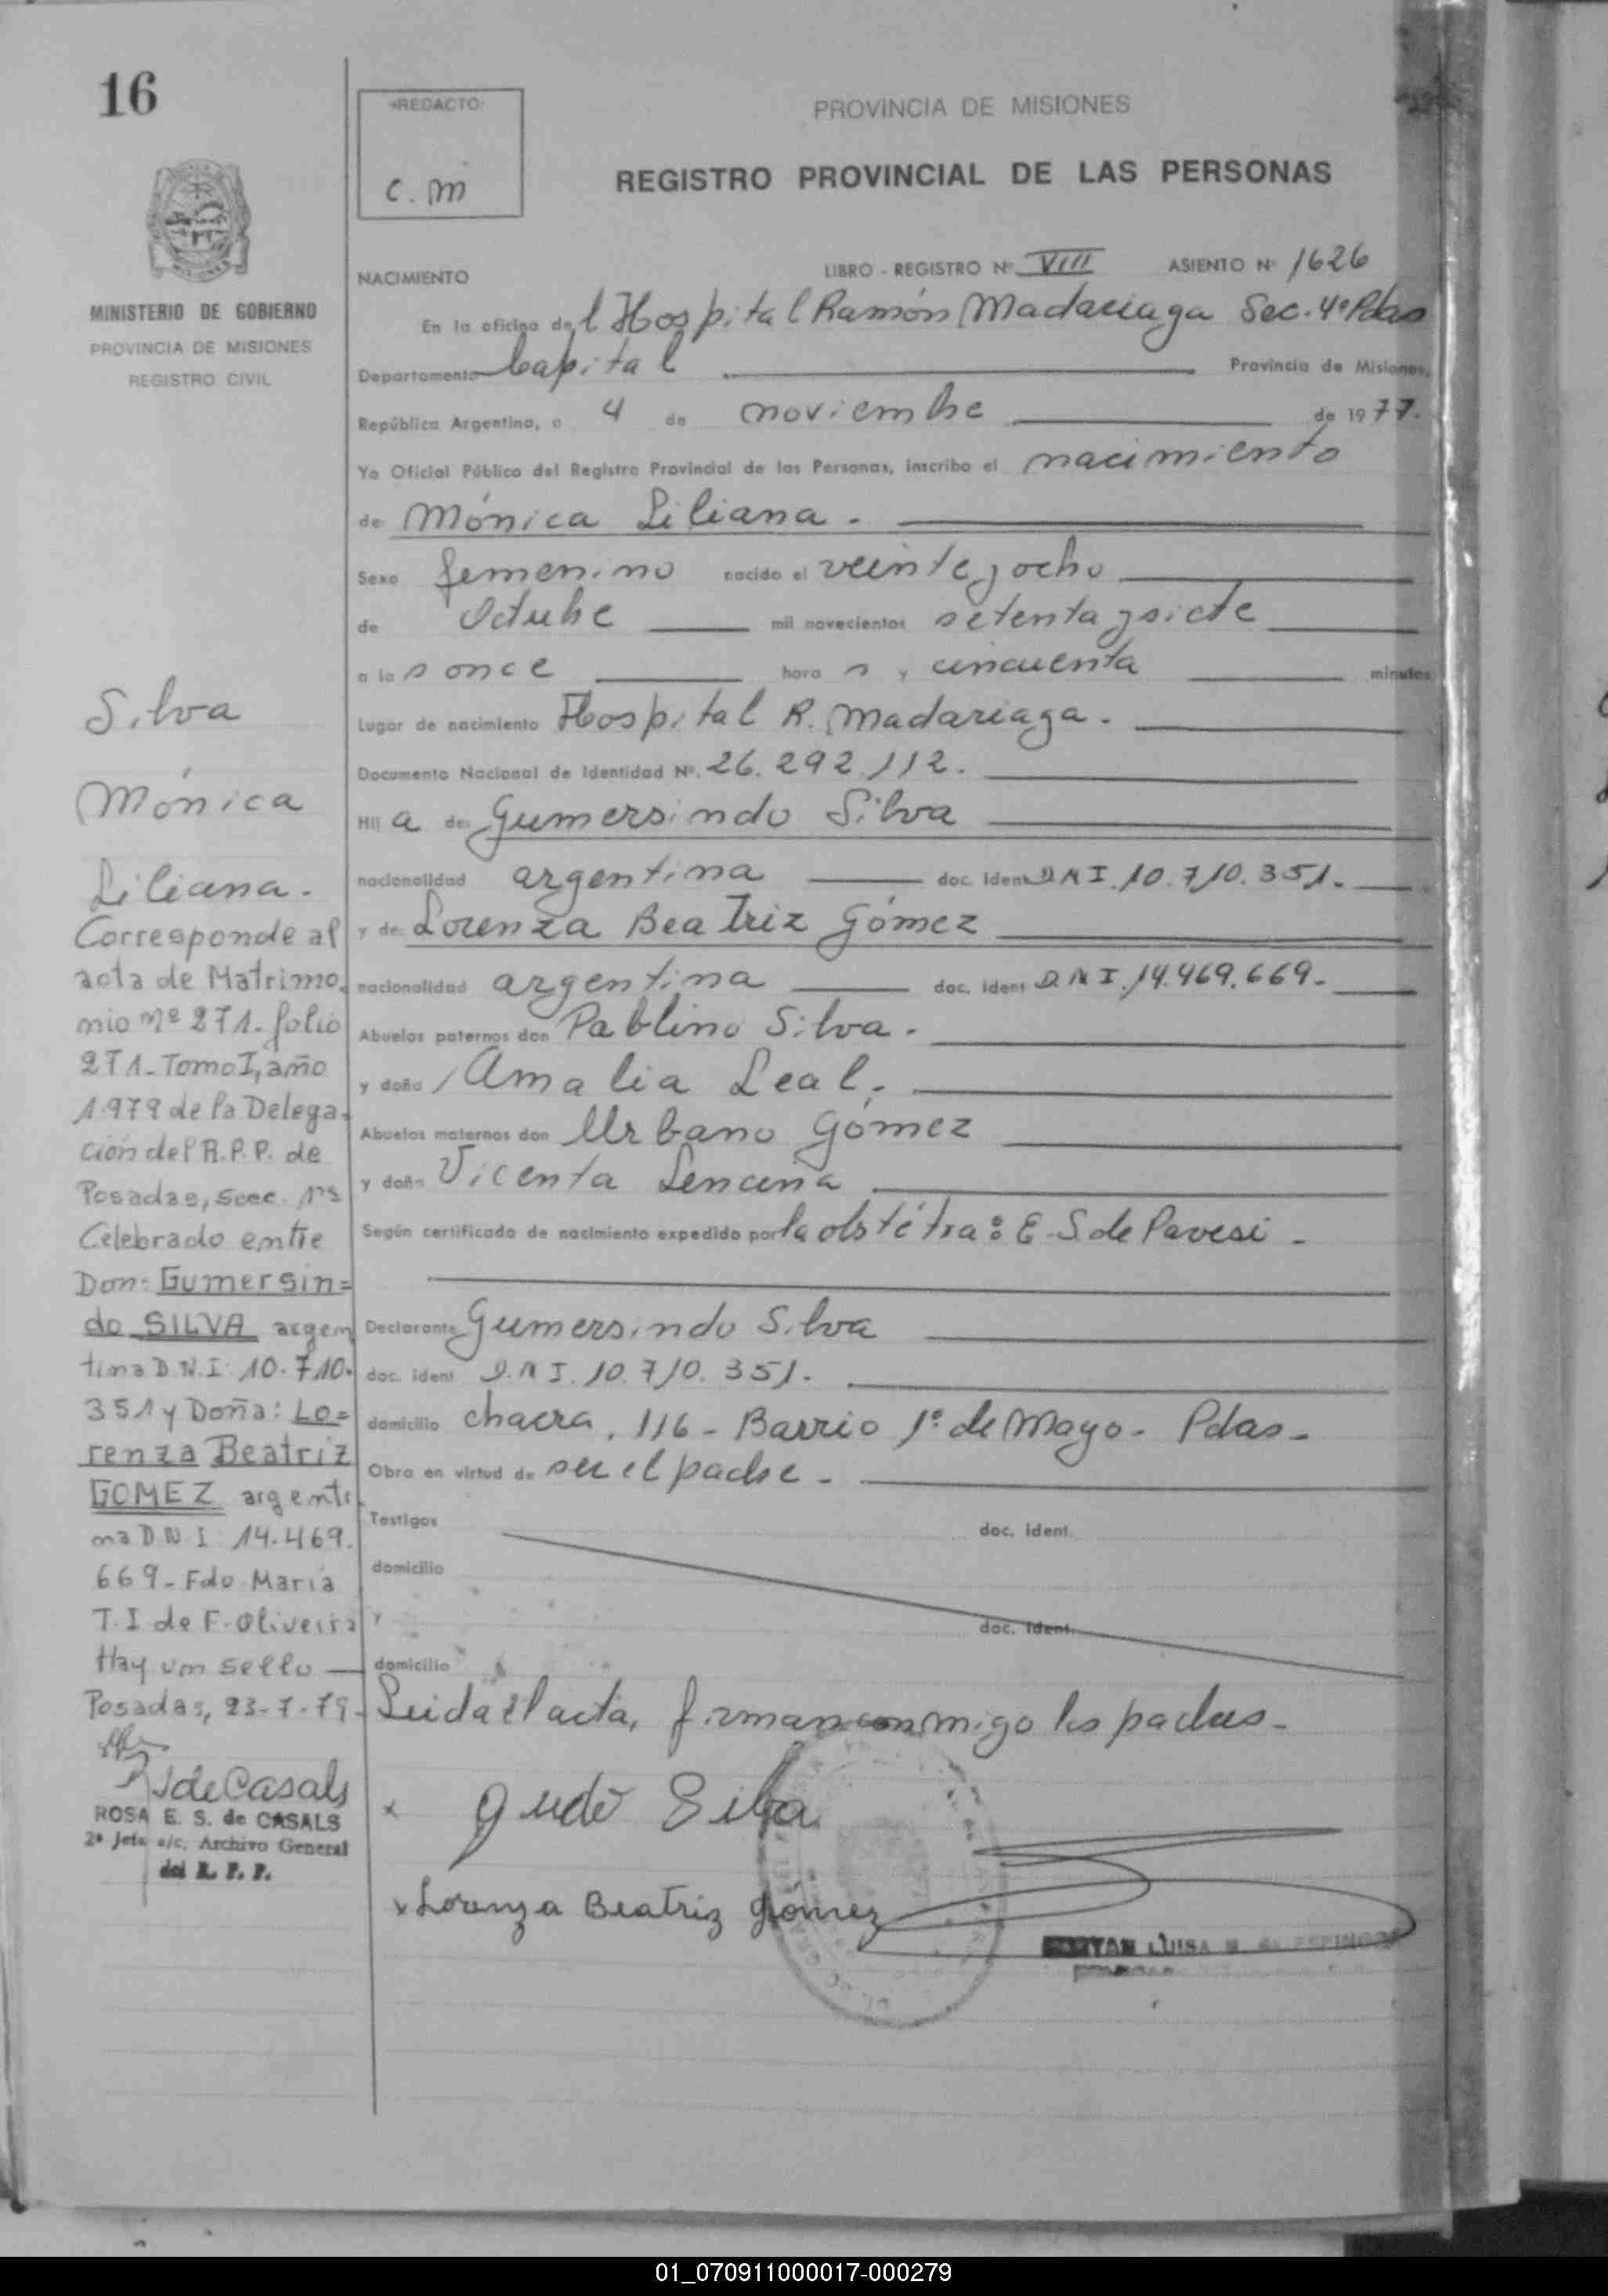 16
REDACTO:
C. m
PROVINCIA DE MISIONES
REGISTRO PROVINCIAL DE LAS PERSONAS
MINISTERIO DE GOBIERNO
PROVINCIA DE MISIONES
REGISTRO CIVIL
NACIMIENTO
LIBRO - REGISTRO Nº VIII ASIENTO Nº 1626
En la oficina del Hospital Ramón Madariaga Sec. 4ª Pdas
Departamento Capital Provincia de Misiones,
República Argentina, a 4 de noviembre de 1977.
Yo Oficial Público del Registro Provincial de las Personas, inscribo el nacimiento
de Mónica Liliana.
Sexo femenino nacido el veinte y ocho
de Octubre mil novecientos setenta y siete
a las once horas y cincuenta minutos
Lugar de nacimiento Hospital R. Madariaga.
Documento Nacional de Identidad Nº. 26.292.112.
Hija de Gumersindo Silva
nacionalidad argentina doc. ident D N I. 10.710.351.
y de Lorenza Beatriz Gómez
nacionalidad argentina doc. ident D. N I. 14.469.669.
Abuelos paternos don Pablino Silva.
y doña Amalia Leal.
Abuelos maternos don Urbano Gómez
y doña Vicenta Lencina
Según certificado de nacimiento expedido por la obstétra: E. S. de Pavesi -
Declarante Gumersindo Silva
doc. ident D. N I. 10.710.351.
domicilio chacra. 116 - Barrio 1º de Mayo - Pdas -
Obra en virtud de ser el padre.
Testigos doc. ident.
domicilio
y doc. ident.
domicilio
Leida el acta, firman conmigo los padres -
x Silva
x Lorenza Beatriz Gómez
LUISA
Silva
Mónica
Liliana.
Corresponde al
acta de Matrimo
nio Nº 271. folio
271 - Tomo I, año
1.979 de la Delega
ción del R.P.P. de
Posadas, Secc. 1ra
Celebrado entre
Don: Gumersin=
do SILVA argen
tina D.N.I: 10.710.
351 y Doña: Lo=
renza Beatriz
GOMEZ argenti
na D.N.I: 14.469.
669 - Fdo Maria
T. I de F. Oliveira
Hay un sello —
Posadas, 23-7-79-
de Casals
ROSA E. S. de CASALS
2ª Jefa a/c. Archivo General
del R. P. P.
01_070911000017-000279